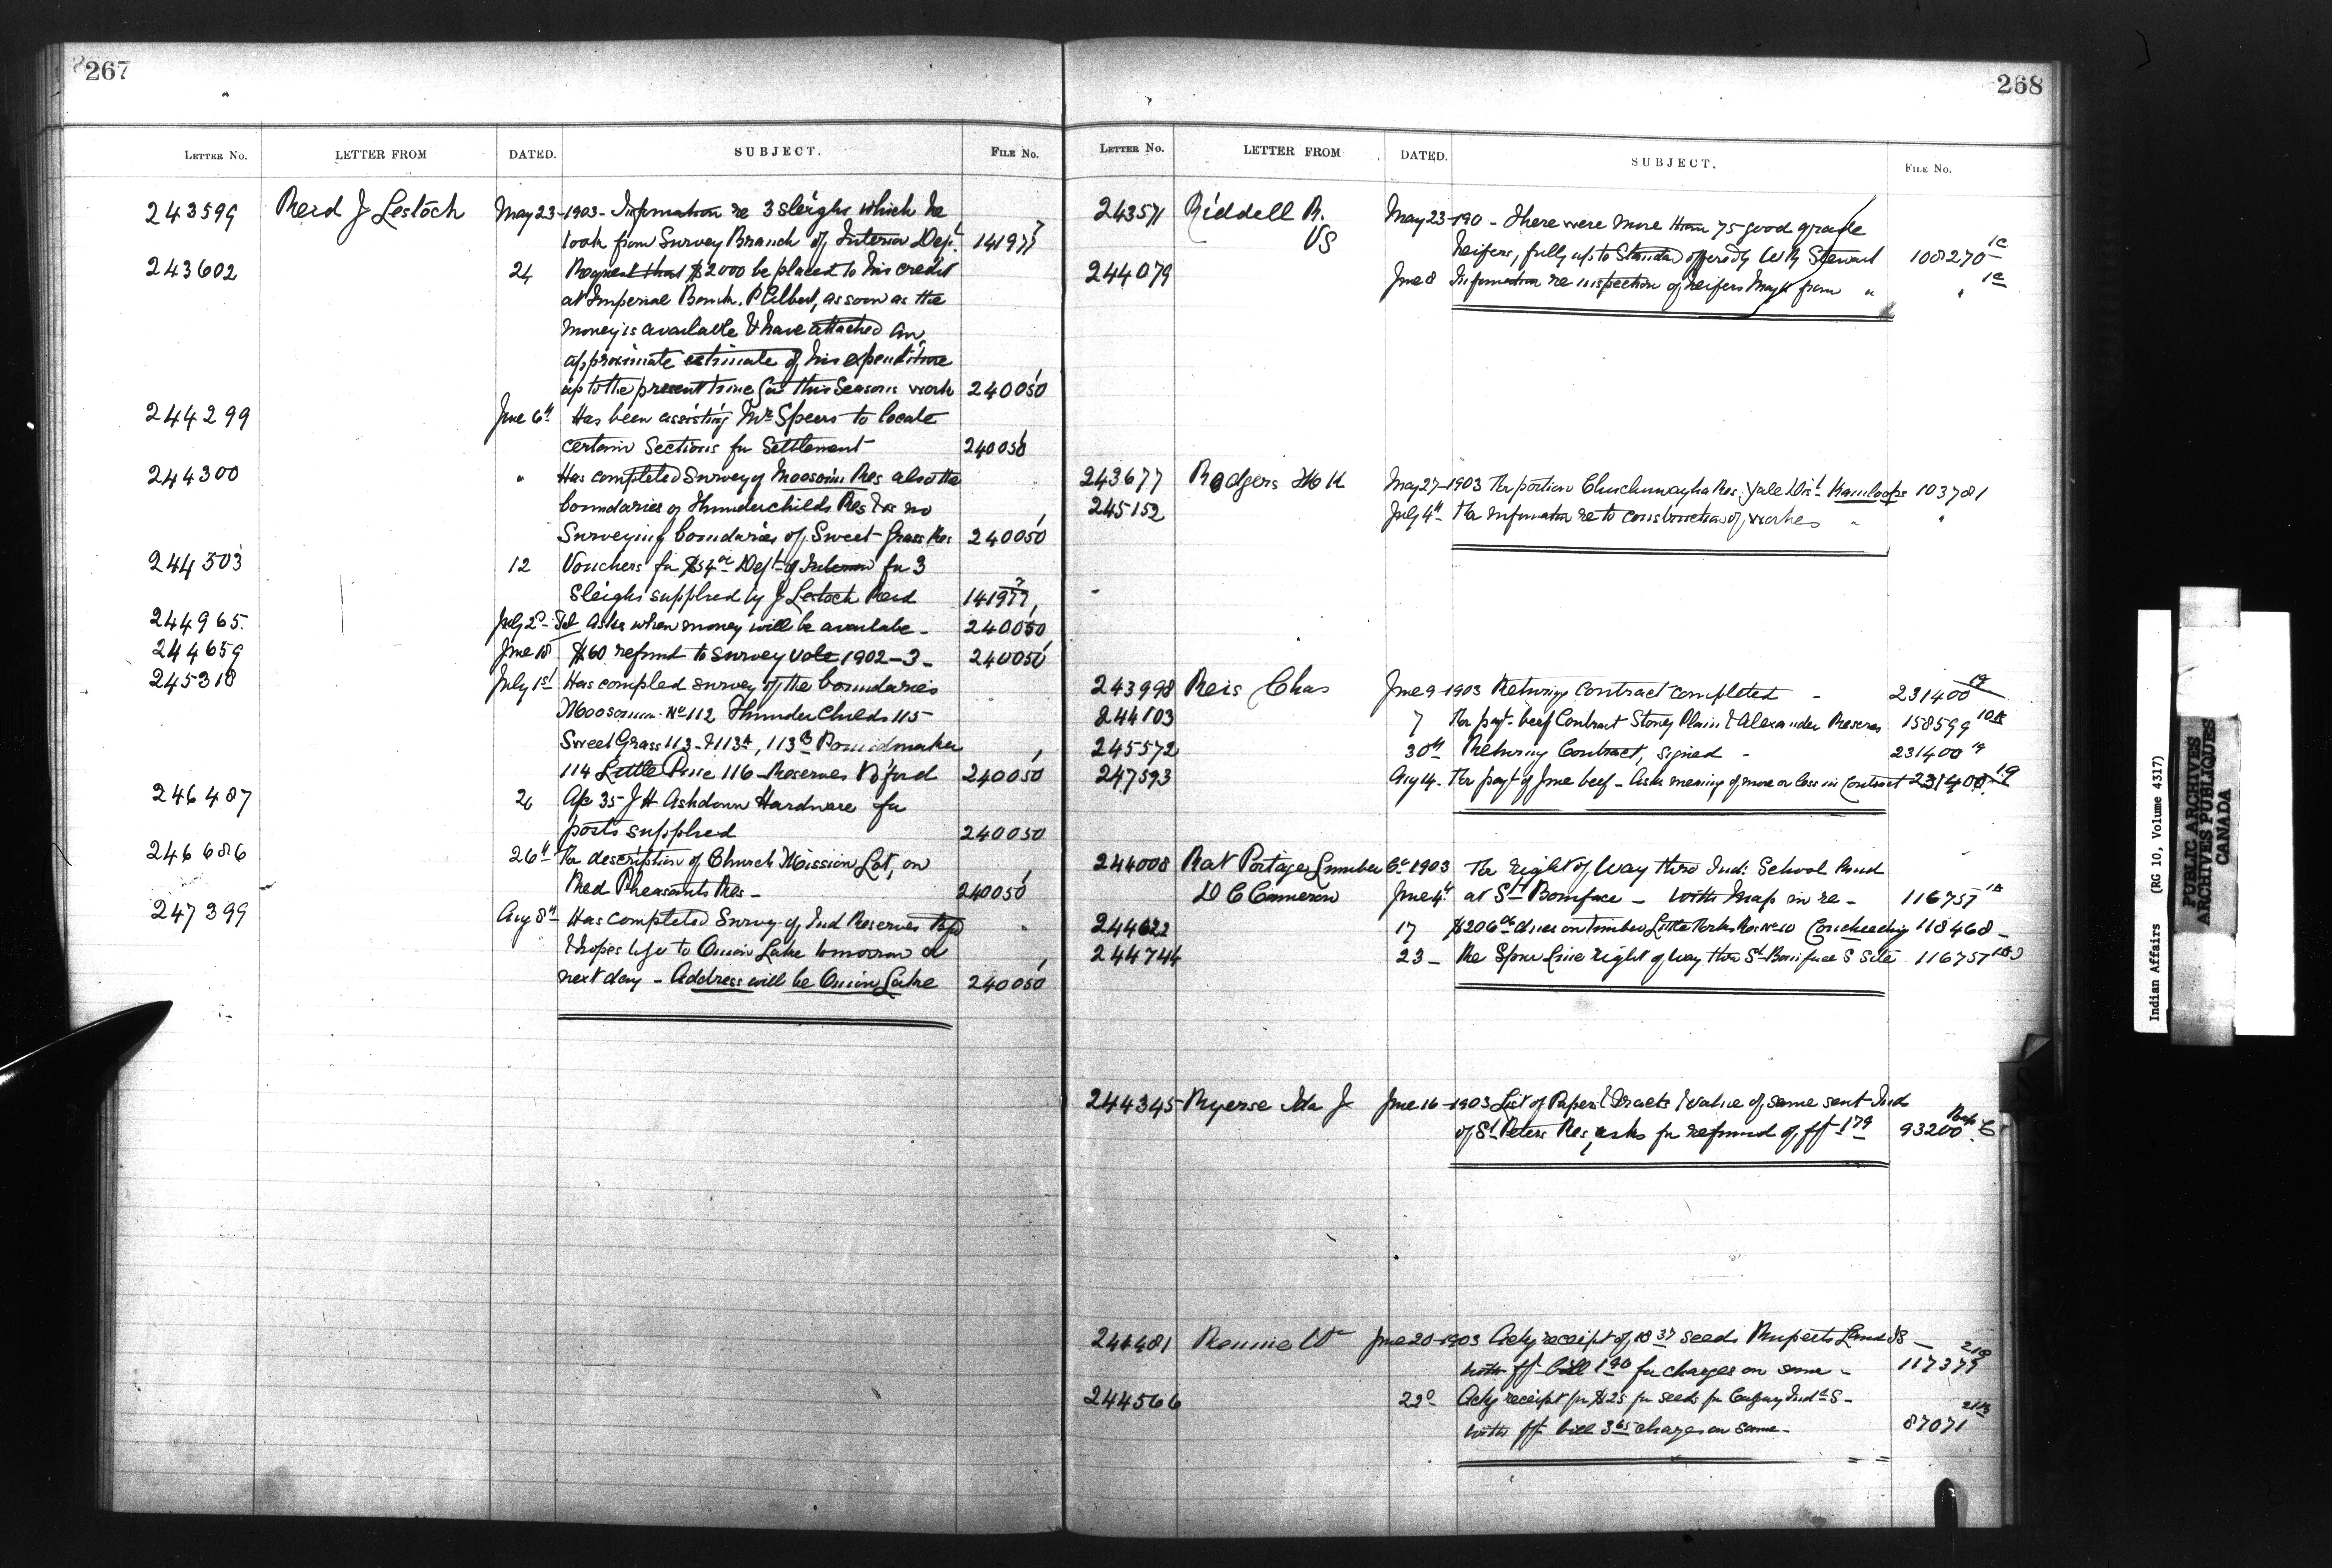 267
LETTER NO. LETTER FROM DATED. SUBJECT. FILE NO.
243599 Reid J Lestock May 23-1903- Information re 3 sleighs which he
took from Survey Branch of Interior Dept. 141977
243602 24 Request that $2000 be placed to his credit
at Imperial Bank. P Albert, as soon as the
money is available & have attached an
approximate estimate of his expenditure
up to the present time for this Seasons work 240050
244299 June 6th Has been assisting Mr Speers to locate
certain Sections for Settlement 240050
244300 " Has completed Survey of Moosomin Res also the
boundaries of Thunderchilds Res & is no
Surveying boundaries of Sweet Grass Res 240050
244503 12 Vouchers for $54 Dept of Interior for 3
Sleighs supplied by J Lestock Reid 141977
244965. July 2d- Tel Asks when money will be availabe - 240050
244659 June 18 $60 refund to Survey vote 1902-3- 240050
245318 July 1st Has compled survey of the boundaries
Moosomin No 112 Thunder Childs 115
Sweet Grass 113- & 113A, 113B Poundmaker
114 Little Pine 116- Reserves B'ford 240050
246487 A/c 35- J H Ashdown Hardware for
posts supplied 240050
246686 26th For description of Church Mission Lot, on
Red Pheasants Res- 240050
247399 Aug 8th Has completed Survey of Ind Reserves
& hopes to Onion Lake tomorrow or
next day - Address will be Onion Lake 240050
268
LETTER NO. LETTER FROM DATED. SUBJECT. FILE NO.
243571 Riddell R. May 23-190 - There were more than 75 good grade
VS heifers, fully up to Standard offered by Stewart 108270-1c
244079 June 8 Information re inspection of heifers from " " 1c
243677 Rodgers May 27-1903 For portion Chuchuwayha Res. Yale Dist Kamloops 103781
245152 July 4th For information re to construction of works " "
243998 Reis Chas June 9-1903 Returning contract completed - 231400 19
244103 7 For payt- beef Contract Stoney Plain & Alexander Reserves 158599
245572 30th Returning Contract, signed - 231400 19
247593 Aug 4- For payt of June beef - Asks meaning of more or less in Contract 231400.19
244008 Rat Portage Lumber Co 1903 For right of Way thro Ind. School land
D C Cameron June 4th at St Boniface - with map in re - 116757
244622 17 $206 dues on timber Little Forks Res No 10 Coucheeching 118468-
244744 23- Re Spur Line right of way thro St Boniface S Site 116757
244345 Ryerse Ida J June 16-1903 List of Papers & tracts & value of same sent Inds
of St Peters Res, asks for refund of fft 1.79 93200
244481 Rennie Wm June 20-1903 Ackg receipt of 18.37 seeds Ruperts Land IS -
with fft bill 1.90 for charges on same - 117379
244566 22d Ackg receipt for $25 for seeds for Calgary Ind S-
with fft bill 3.65 charges on same- 87071
Indian Affairs (RG 10, Volume 4317)
PUBLIC ARCHIVES
ARCHIVES PUBLIQUES
CANADA